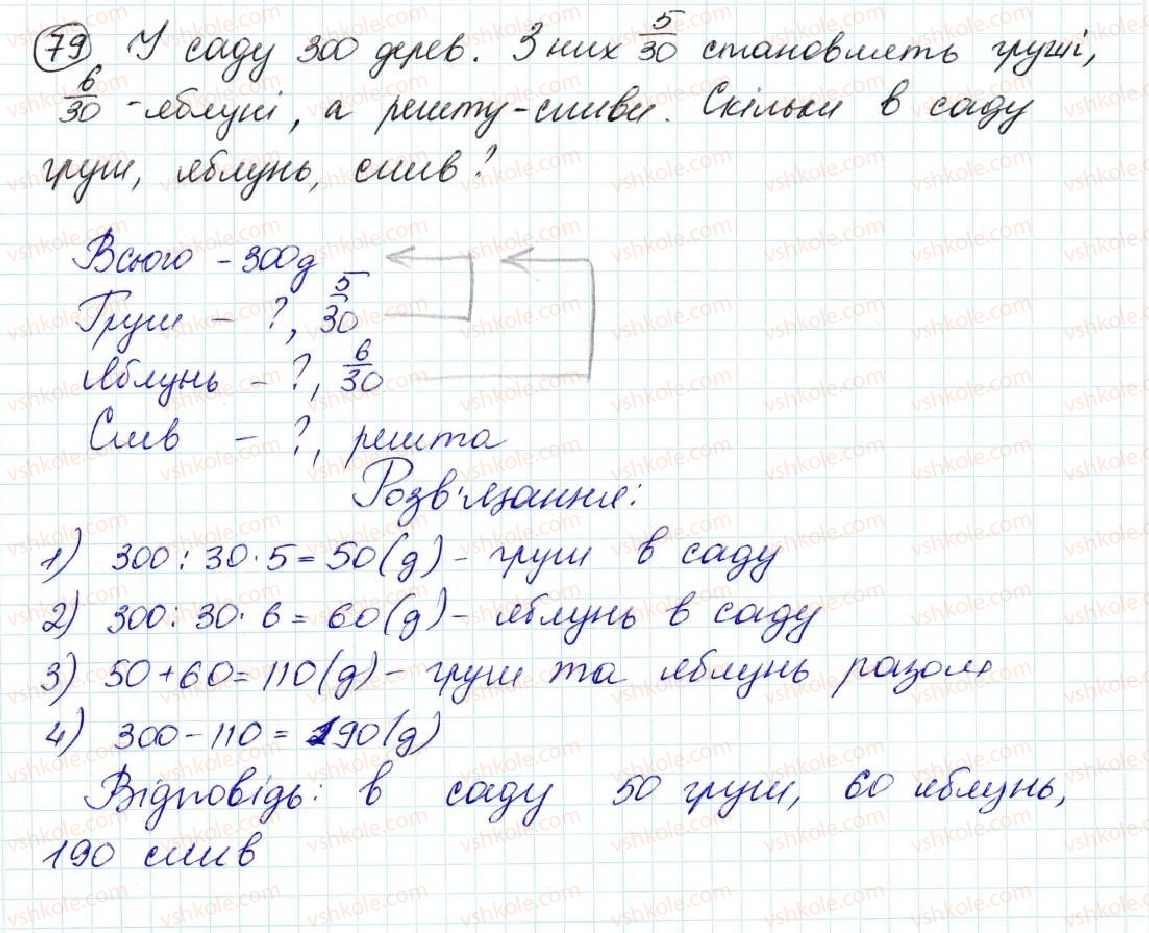 79 У саду 300 дерев. З них 5/30 становлять груші,
6/30 - яблуні, а решту - сливи. Скільки в саду
груш, яблунь, слив?
Всього - 300д
Груш - ?, 5/30
Яблунь - ?, 6/30
Слив - ?, решта
Розв'язання:
1) 300 : 30 · 5 = 50 (д) - груш в саду
2) 300 : 30 · 6 = 60 (д) - яблунь в саду
3) 50 + 60 = 110 (д) - груш та яблунь разом
4) 300 - 110 = 190 (д)
Відповідь: в саду 50 груш, 60 яблунь,
190 слив
vshkole.com